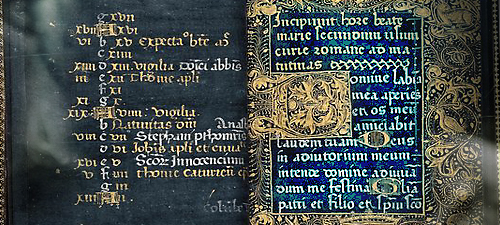 g xvii
A xvi
vi b xv Expectatio bte
c xiiii
d xiii vigilia abbis
iii e xii Thome apli
f xi
xi g x
xix A vigilia
b Nativitas dni
c vii Stephani
d vi Johis apli et
xvi e v Scor Innocencium
v f iiii thome
g iii
xiii A
Incipiunt hore beate
marie secundum usum
curie romane ad ma
tutinas
Domine labia
mea aperies
et os meum
laudem tuam Deus
in adiutorium meum
intende domine adiuva
dum me festina Glia
patri et filio et spiu sco